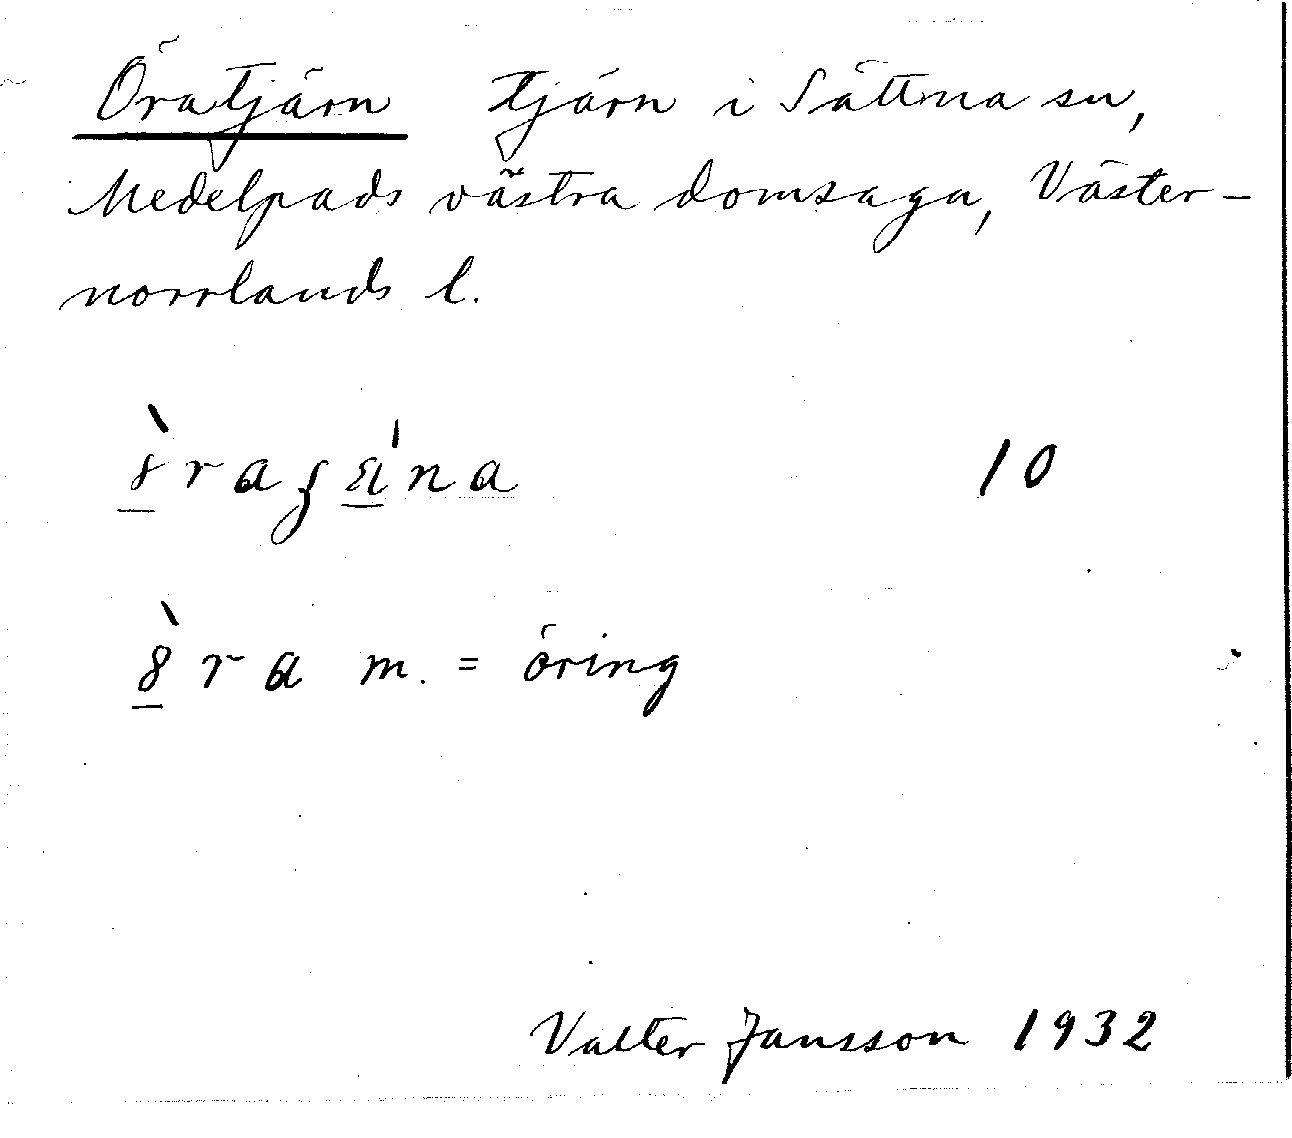 Öratjärn tjärn i Sättna sn,
Medelpads västra domsaga, Väster-
norrlands l.
10
m. = öring
Valter Jansson 1932